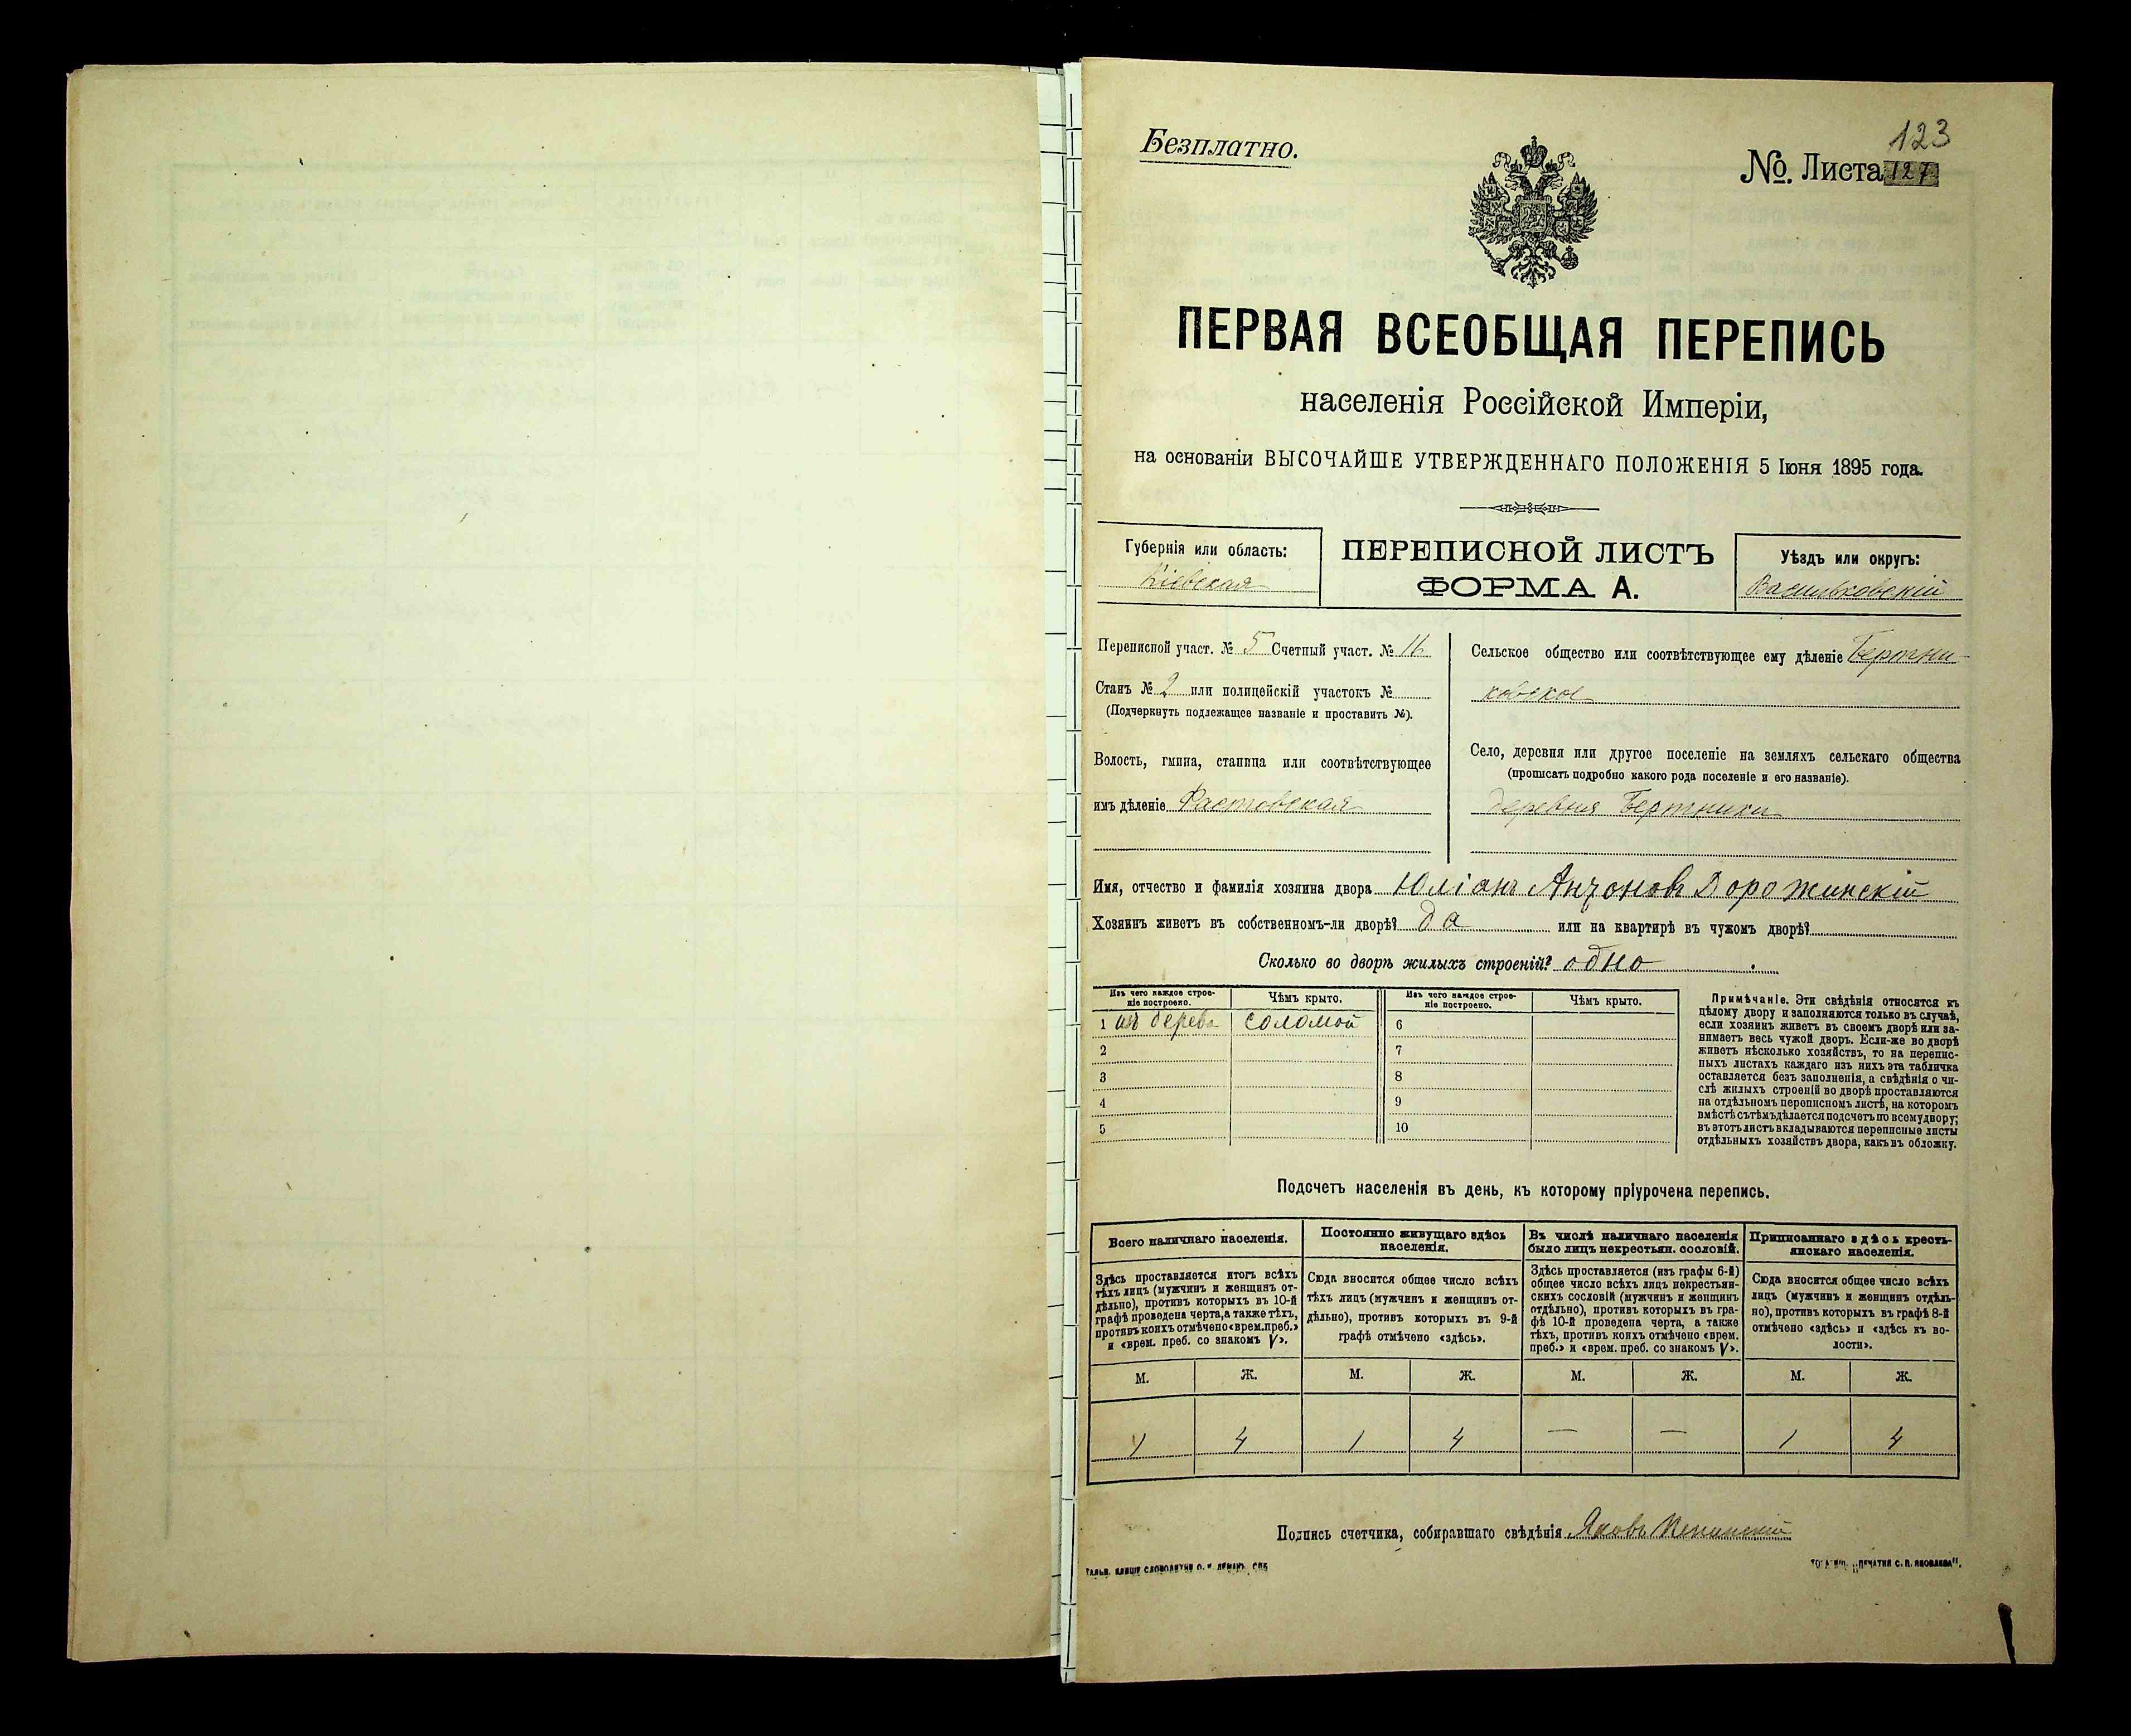 Безплатно.
123
№. Листа 127
ПЕРВАЯ ВСЕОБЩАЯ ПЕРЕПИСЬ
населенія Россійской Имперіи,
на основаніи ВЫСОЧАЙШЕ УТВЕРЖДЕННАГО ПОЛОЖЕНІЯ 5 Іюня 1895 года.
Губернія или область:
Кіевская
ПЕРЕПИСНОЙ ЛИСТЪ
ФОРМА А.
Уѣздъ или округъ:
Васильковскій
Переписной участ. № 5 Счетный участ. № 11
Станъ № 2 или полицейскій участокъ №
(Подчеркнуть подлежащее названіе и проставить №).
Волость, гмина, станица или соотвѣтствующее
имъ дѣленіе Фастовская
Сельское общество или соотвѣтствующее ему дѣленіе Бертни
ковское
Село, деревня или другое поселеніе на земляхъ сельскаго общества
(прописать подробно какого рода поселеніе и его названіе).
деревня Бертники
Имя, отчество и фамилія хозяина двора Юліанъ Антоновъ Дорожинскій
Хозяинъ живетъ въ собственномъ-ли дворѣ? да или на квартирѣ въ чужомъ дворѣ?
Сколько во дворѣ жилыхъ строеній? одно
Изъ чего каждое строе-
ніе построено.
Чѣмъ крыто.
Изъ чего каждое строе-
ніе построено.
Чѣмъ крыто.
1 изъ дерева соломой 6
2 7
3 8
4 9
5 10
Примѣчаніе. Эти свѣдѣнія относятся къ
цѣлому двору и заполняются только въ случаѣ,
если хозяинъ живетъ въ своемъ дворѣ или за-
нимаетъ весь чужой дворъ. Если-же во дворѣ
живетъ нѣсколько хозяйствъ, то на перепис-
ныхъ листахъ каждаго изъ нихъ эта табличка
оставляется безъ заполненія, а свѣдѣнія о чи-
слѣ жилыхъ строеній во дворѣ проставляются
на отдѣльномъ переписномъ листѣ, на которомъ
вмѣстѣ съ тѣмъ дѣлается подсчетъ по всему двору;
въ этотъ листъ вкладываются переписные листы
отдѣльныхъ хозяйствъ двора, какъ въ обложку.
Подсчетъ населенія въ день, къ которому пріурочена перепись.
Всего наличнаго населенія.
Здѣсь проставляется итогъ всѣхъ
тѣхъ лицъ (мужчинъ и женщинъ от-
дѣльно), противъ которыхъ въ 10-й
графѣ проведена черта, а также тѣхъ,
противъ коихъ отмѣчено «врем. преб.»
и «врем. преб. со знакомъ V».
Постоянно живущаго здѣсь
населенія.
Сюда вносится общее число всѣхъ
тѣхъ лицъ (мужчинъ и женщинъ от-
дѣльно), противъ которыхъ въ 9-й
графѣ отмѣчено «здѣсь».
Въ числѣ наличнаго населенія
было лицъ некрестьян. сословій.
Здѣсь проставляется (изъ графы 6-й)
общее число всѣхъ лицъ некрестьян-
скихъ сословій (мужчинъ и женщинъ
отдѣльно), противъ которыхъ въ гра-
фѣ 10-й проведена черта, а также
тѣхъ, противъ коихъ отмѣчено «врем.
преб.» и «врем. преб. со знакомъ V».
Приписаннаго здѣсь кресть-
янскаго населенія.
Сюда вносится общее число всѣхъ
лицъ (мужчинъ и женщинъ отдѣль-
но), противъ которыхъ въ графѣ 8-й
отмѣчено «здѣсь» и «здѣсь къ во-
лости».
М. Ж. М. Ж. М. Ж. М. Ж.
1 4 1 4 — — 1 4
Подпись счетчика, собиравшаго свѣдѣнія Яковъ